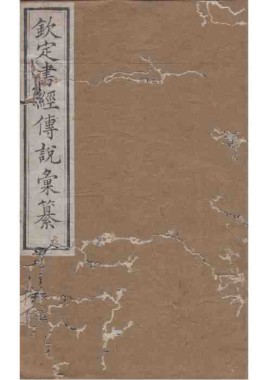 欽定書經傳說彙纂